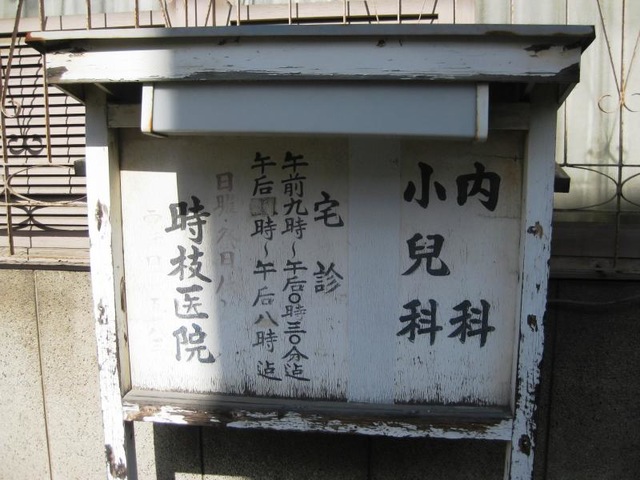 内科
小兒科
宅診
午前九時～午后0時三0分迠
午后 時～午后八時迠
日
時枝医院